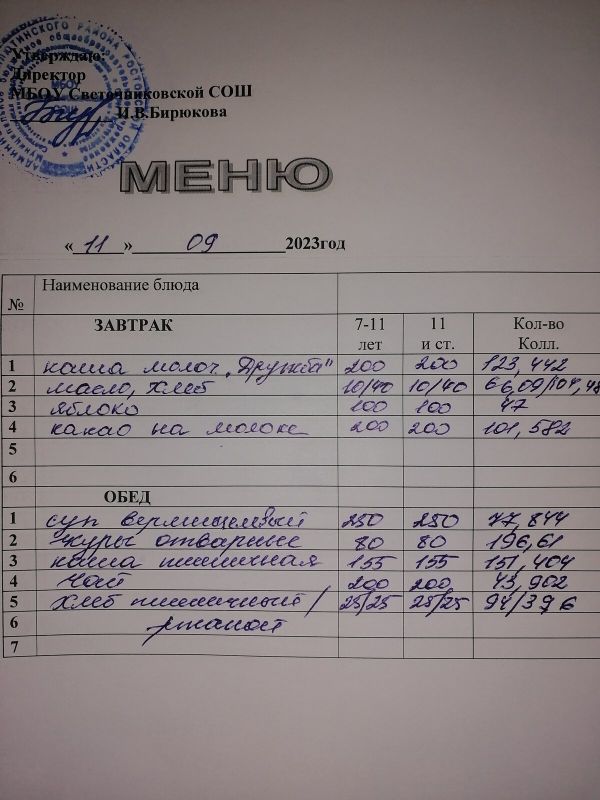 Утверждаю:
Директор
МБОУ Светочниковской СОШ
И.В.Бирюкова
МЕНЮ
« 11 » 09 2023год
№ Наименование блюда
ЗАВТРАК 7-11 лет 11 и ст. Кол-во Колл.
1 каша молоч „Дружба" 200 200 123,442
2 масло, хлеб 10/40 10/40 66,09/104,48
3 яблоко 100 100 47
4 какао на молоке 200 200 101,582
5
6
ОБЕД
1 суп вермишелевый 250 250 77,844
2 куры отварные 80 80 196,61
3 каша пшеничная 155 155 151,404
4 чай 200 200 43,902
5 хлеб пшеничный/ 25/25 25/25 94/39,6
6 ржаной
7